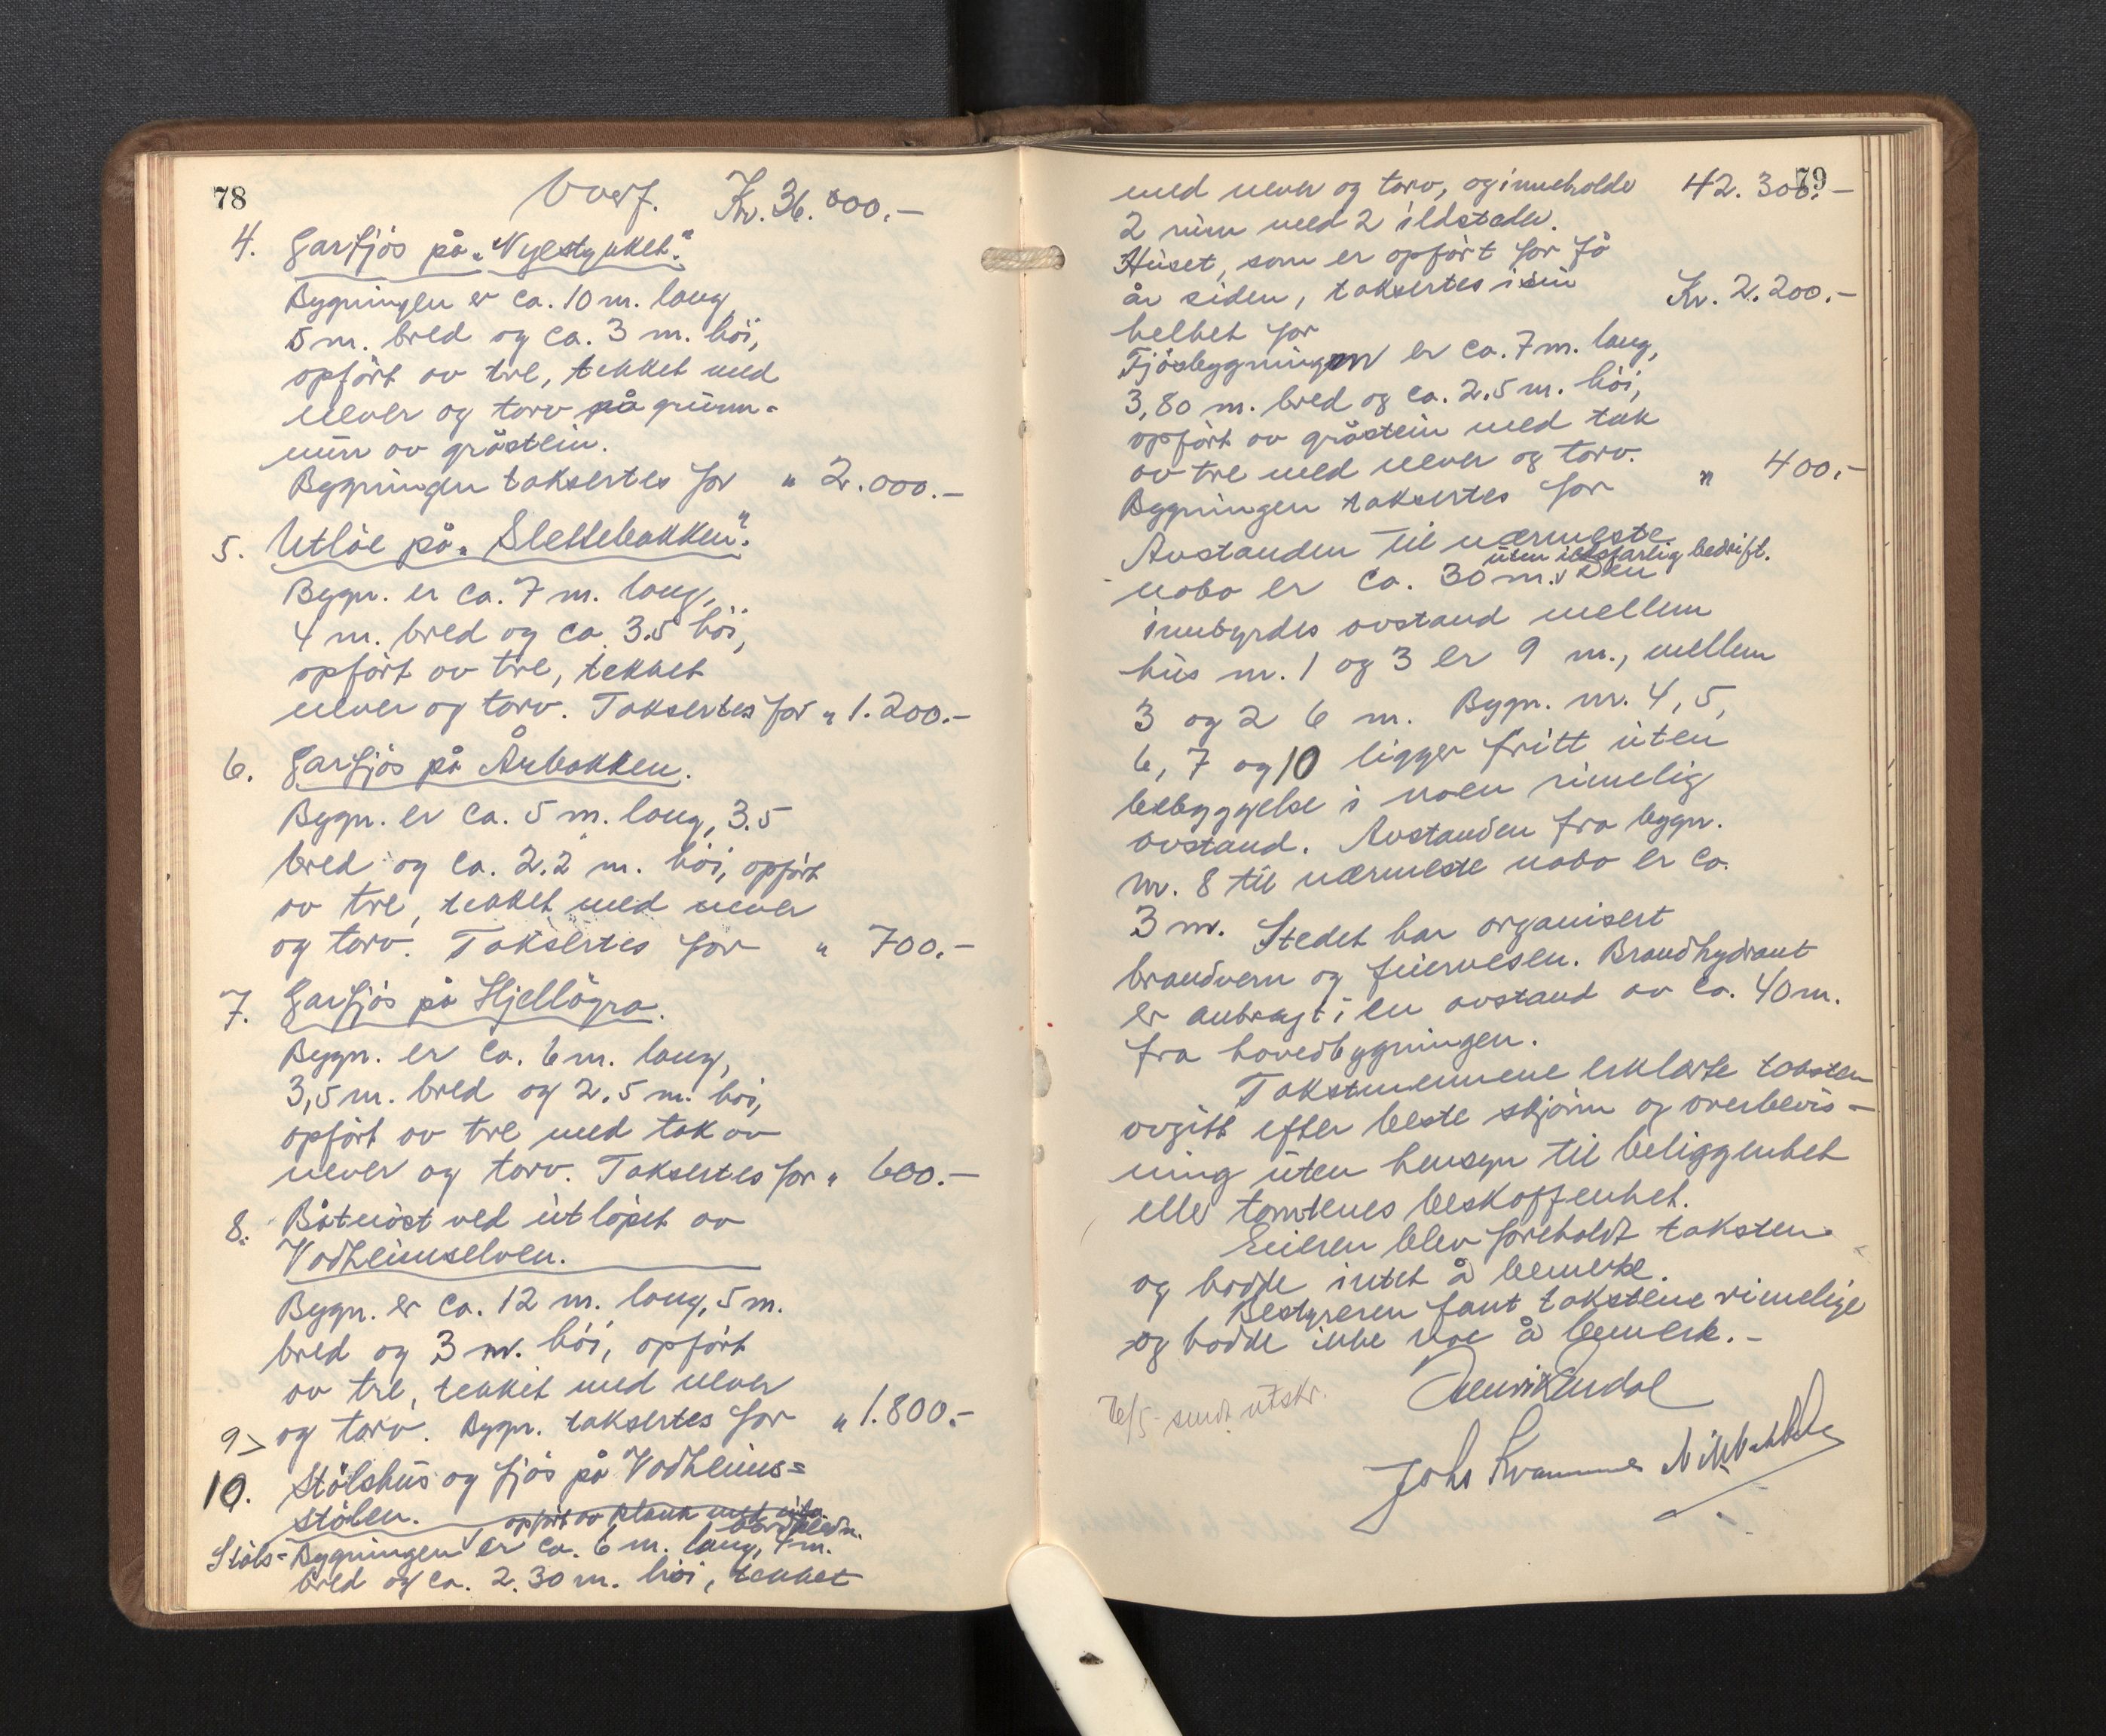 78
Overf. Kr. 36.000.-
4. Garfjös på „Nyestykket."
Bygningen er ca. 10 m. lang,
5 m. bred og ca. 3 m. höi,
opfört av tre, tekket med
never og torv på grunn-
mur av gråstein.
Bygningen taksertes for „ 2.000.-
5. Utlöe på „Slettebakken".
Bygn. er ca. 7 m. lang,
4 m. bred og ca. 3.5 höi,
opfört av tre, tekket
never og torv. Taksertes for „ 1.200.-
6. Garfjös på Årbakken.
Bygn. er ca. 5 m. lang, 3.5
bred og ca. 2.2 m. höi, opfört
av tre, tekket med never
og torv. Taksertes for „ 700.-
7. Garfjös på Hjellögra.
Bygn. er ca. 6 m. lang,
3,5 m. bred og 2.5 m. höi,
opfört av tre med tak av
never og torv. Taksertes for „ 600.-
8. Båtnöst ved utlöpet av
Vadheimselven.
Bygn. er ca. 12 m. lang, 5 m.
bred og 3 m. höi, opfört
av tre, tekket med never
og torv. Bygn. taksertes for „ 1.800.-
9>
10. Stölshus og fjös på Vadheims=
stölen.
opfört av plank med utv. bordkledn.
Stöls= Bygningen er ca. 6 m. lang, 4 m.
bred og ca. 2.30 m. höi, tekket
79
med never og torv, og inneholde 42.300.-
2 rum med 2 ildsteder.
Huset, som er opfört for få
år siden, taksertes i sin
helhet for Kr. 2.200.-
Fjösbygningen er ca. 7 m. lang,
3,80 m. bred og ca. 2.5 m. höi,
opfört av gråstein med tak
av tre med never og torv.
Bygningen taksertes for „ 400.-
Avstanden til nærmeste
uten ildsfarlig bedrift.
nabo er ca. 30 m. Den
innbyrdes avstand mellem
hus nr. 1 og 3 er 9 m., mellem
3 og 2 6 m. Bygn. nr. 4, 5,
6, 7 og 10 ligger fritt uten
bebyggelse i noen rimelig
avstand. Avstanden fra bygn.
nr. 8 til nærmeste nabo er ca.
3 m. Stedet har organisert
brandvern og feiervesen. Brandhydrant
er anbragt i en avstand av ca. 40 m.
fra hovedbygningen.
Takstmennene erklærte taksten
avgitt efter beste skjönn og overbevis-
ning uten hensyn til beliggenhet
eller tomtenes beskaffenhet.
Eieren blev foreholdt taksten
og hadde intet å bemerke.
Bestyreren fant takstene rimelige
og hadde ikke noe å bemerk.-
sendt utskr.
Johs Kvamme